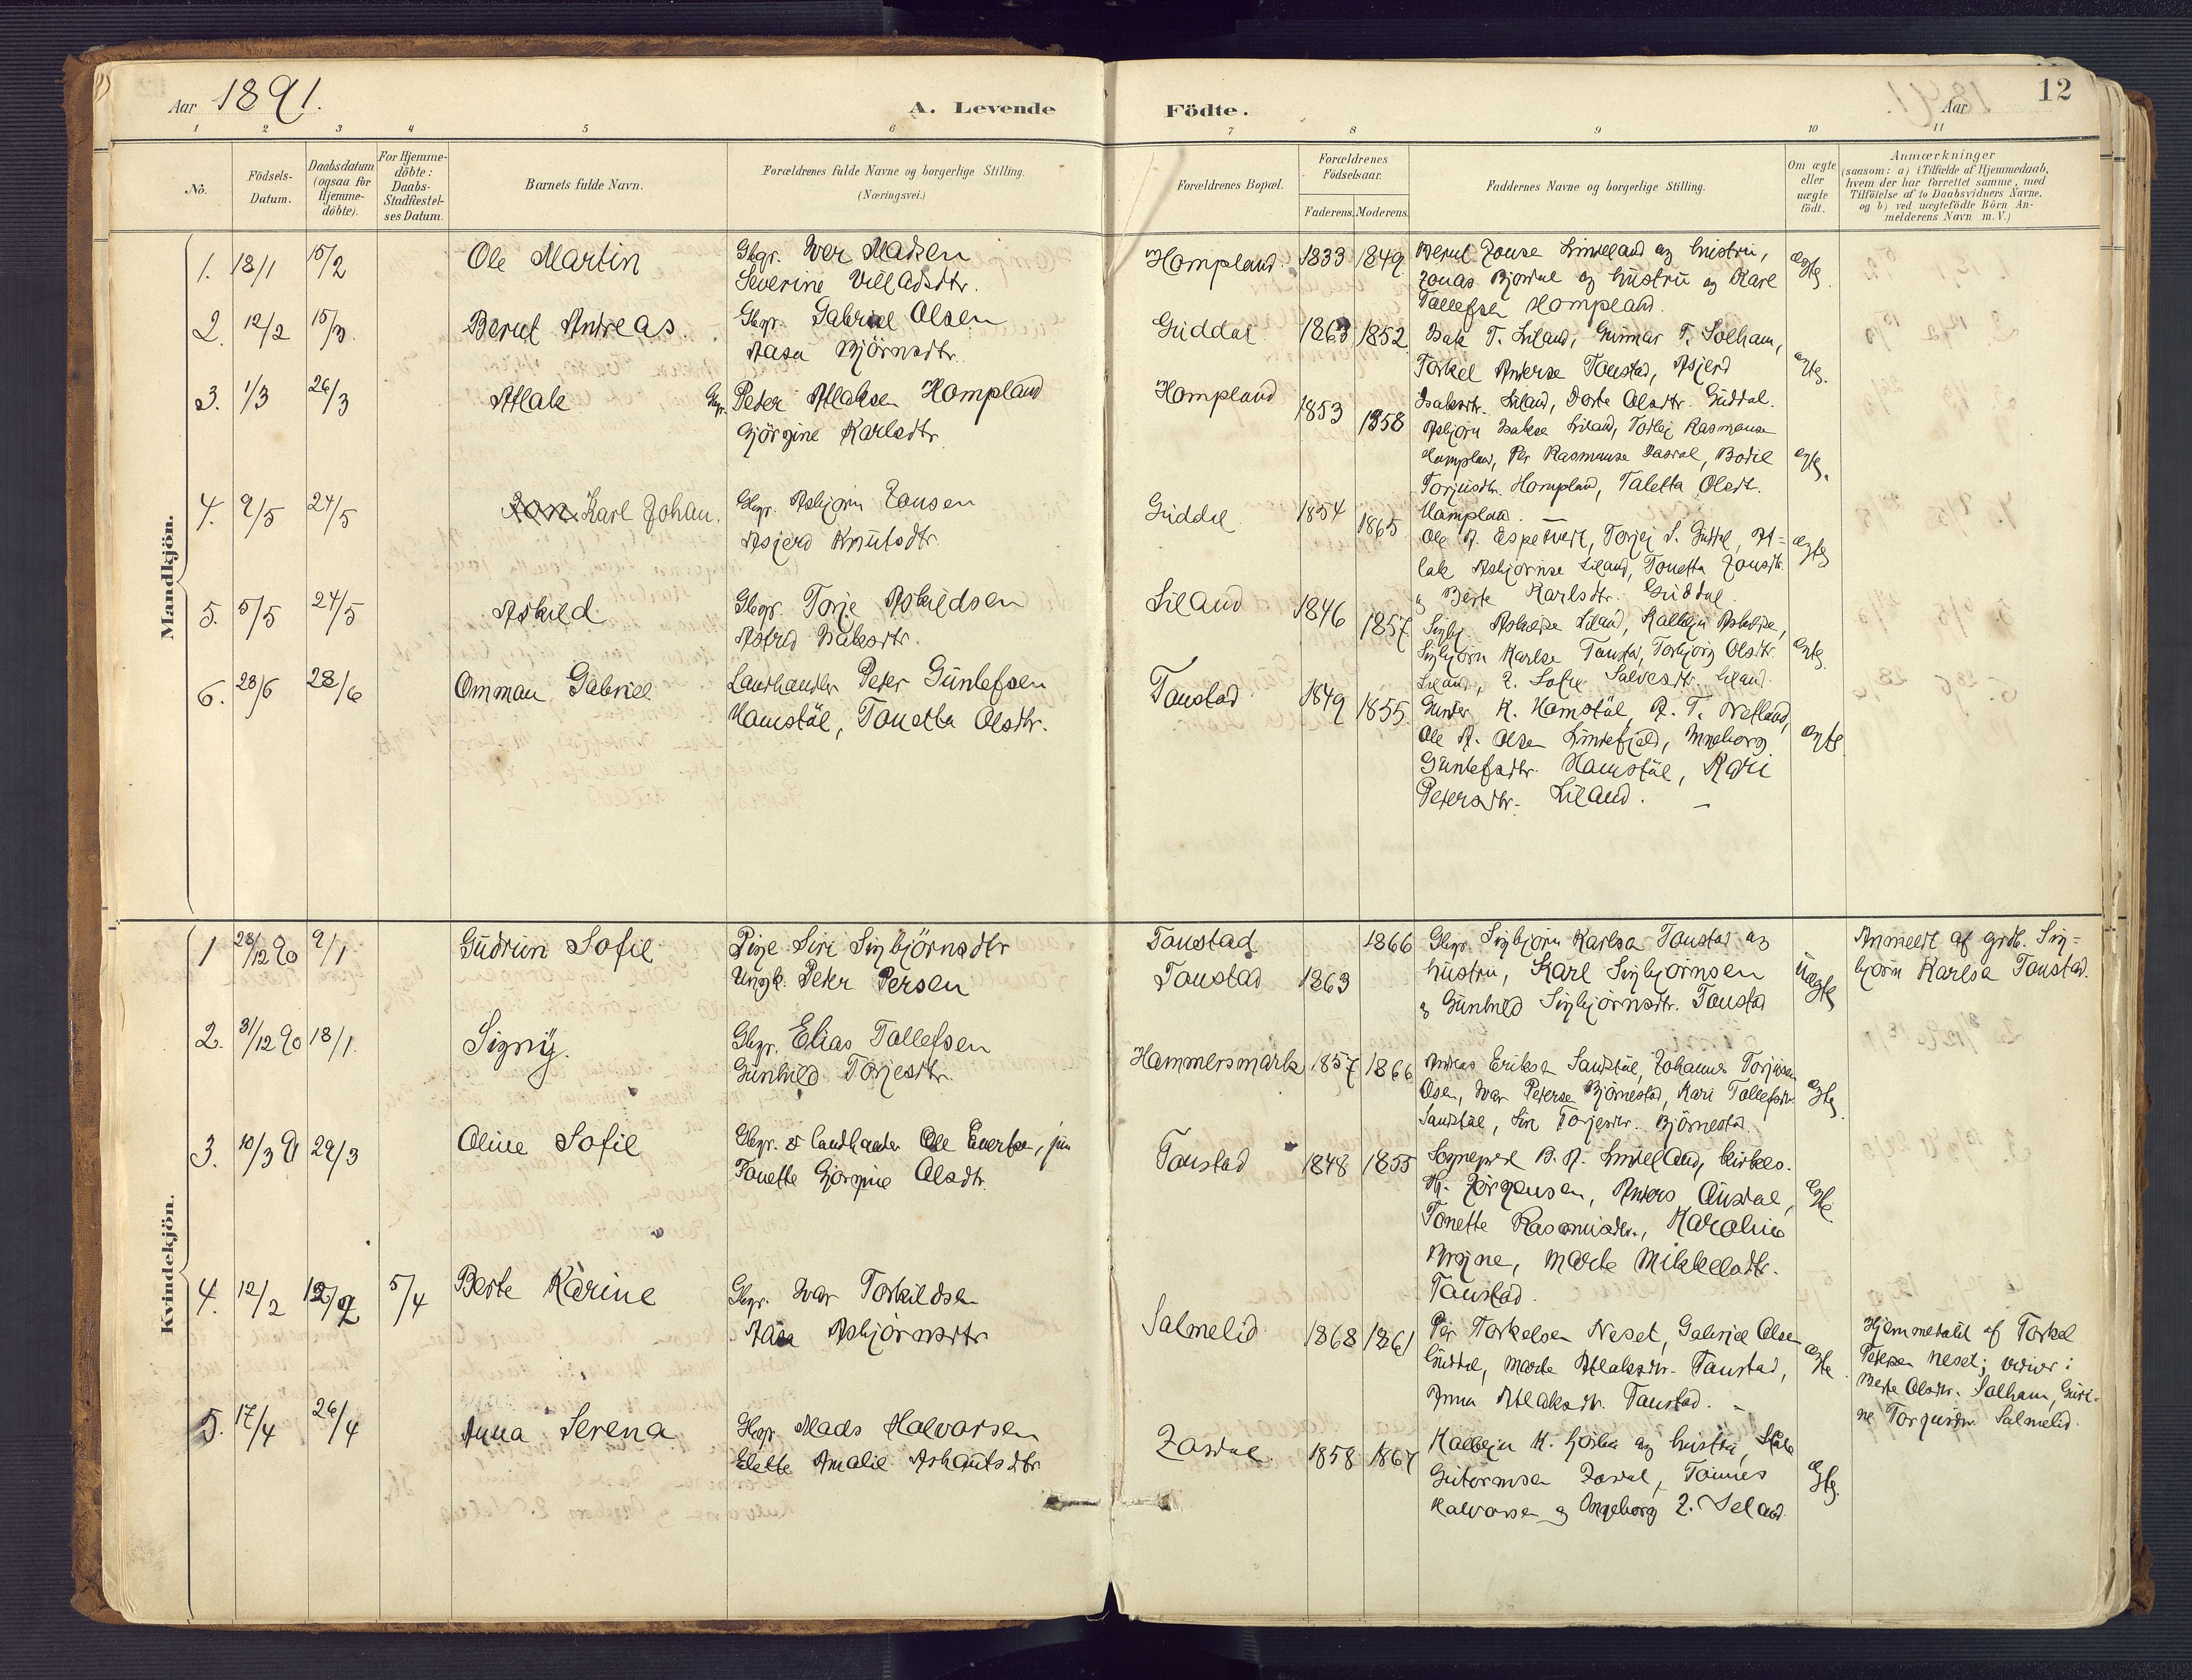 Aar 1891.
A. Levende Födte.
Aar
12
1 2 3 4 5 6 7 8 9 10 11
No.
Födsels-Datum.
Daabsdatum (ogsaa for Hjemme-döbte).
For Hjemme-döbte: Daabs-Stadfæstel-ses Datum.
Barnets fulde Navn.
Forældrenes fulde Navne og borgerlige Stilling. (Næringsvei.)
Forældrenes Bopæl.
Forældrenes Födselsaar.
Faderens. Moderens.
Faddernes Navne og borgerlige Stilling.
Om ægte eller uægte födt.
Anmærkninger
(saasom: a) i Tilfælde af Hjemmedaab,
hvem der har forrettet samme, med
Tilföielse af to Daabsvidners Navne,
og b) ved uægtefödte Börn An-
melderens Navn m.V.)
Mandkjön.
1. 18/1 15/2 Ole Martin
Gbgr. Iver Madsen
Severine Villadsdtr.
Hompland. 1833 1849
Berut Jonse Lindeland og hustru,
Jonas Bjordal og hustru og Karl
Tallefsen Hompland.
ægte.
2. 12/2 15/3. Berut Andreas.
Gbgr. Gabriel Olsen
Aasa Björnsdtr.
Guddal 1863 1852
Isak T. Liland, Gunnar T. Solham,
Torkel Anderse Tonstad, Asjerd
Isaksdtr. Liland, Dorte Olsdtr. Guddal.
ægte.
3. 1/3 26/3 Atlak
Gbgr. Peder Atlaksen Hompland
Gjörgine Karlsdtr.
Hompland 1853 1858
Asbjørn Isakse Liland, Tarlej Rasmusse
Hompland, Per Rasmusse Josdal, Bodil
Torjusdtr. Hompland, Taletta Olsdt.
Hompland.
ægte.
4. 9/5 24/5 Karl Johan.
Gbgr. Asbjørn Jonsen
Asjerd Knutsdtr.
Guddal 1854 1865
Ole A. Espetveit, Torjej S. Guddal, At-
lak Asbjørnse Liland, Tonetta Jonsdtr.
og Berte Karlsdtr. Guddal.
ægte
5. 5/5 24/5 Askild
Gbgr. Torje Askildsen
Astrid Isaksdtr.
Liland 1846 1857
Askildse Liland, Kalleju Askildse,
Sigbjörn Karlse Tonstad, Torbjorg Olsdtr.
Liland, J. Sofie Salvesdtr. Liland.
ægte.
6. 28/6 Omman Gabriel
Landhandler Peder Gunlefsen
Hamstöl, Tonetta Olsdtr.
Tonstad 1849 1855
Gunder K. Hamstöl, A. T. Netland,
Ole A. Olsen Lindefjeld, Inneborg
Gunlefsdtr. Hamstöl, Kari
Pedersdtr. Liland.
ægte
Kvindekjön.
1 28/12 90 9/1 Gudrun Sofie
Pige Siri Sigbjörnsdtr
Ungk. Peder Persen
Tonstad 1866
Tonstad 1863
Gbgr. Sigbjörn Karlsa Tonstad og
hustru, Karl Sigbjörnsen
og Gunhild Sigbjörnsdtr. Tonstad
uægte
Anmeldt af grdb. Sig-
bjørn Karlsa Tonstad.
2. 31/12 90 18/1. Signÿ.
Gbgr. Elias Tallefsen
Gunhild Torjesdtr.
Hammersmark 1857 1866
Andreas Eriksen Sandstöl, Johannes Torjusen
Osen, Ivar Peterse Björnestad, Kari Tallefsdtr.
Sandstöl, Siri Torjesdtr. Björnestad.
ægte.
3. 10/3 91 29/3 Oline Sofie
Gbgr. & landhandler Ole Evertse, jun
Tonette Gjorgine Olsdtr.
Tonstad 1848 1855
Sognepræst B. A. Lindeland, kirkes.
Th. Jörgensen, Anders Ousdal,
Tonette Rasmusdtr., Karoline
Bryne, Marte Mikkelsdtr.
Tonstad.
ægte.
4. 12/2 12/2 5/4 Berte Karine
Gbgr. Ivar Torkildsen
Aasa Asbjörnsdtr
Salmelid 1868 1861
Per Torkelsen Neset, Gabriel Olsen
Guddal, Marte Atlaksdtr. Tonstad,
Anna Atlaksdtr. Tonstad.
ægte
Hjemmedöbt af Torkel
Pedersen Neset; vidner:
Berte Olsdtr. Solham, Guri-
ne Torjusdtr Salmelid.
5. 17/4 26/4 Anna Serena
Gbgr. Mads Halvorsen
Elette Amalie Askautsdtr
Josdal. 1858 1867
Kalleju K. og hustru,
Gutormsen Josdal, Tönnes
Halvorsen og Ingeborg J. Seland
ægte.